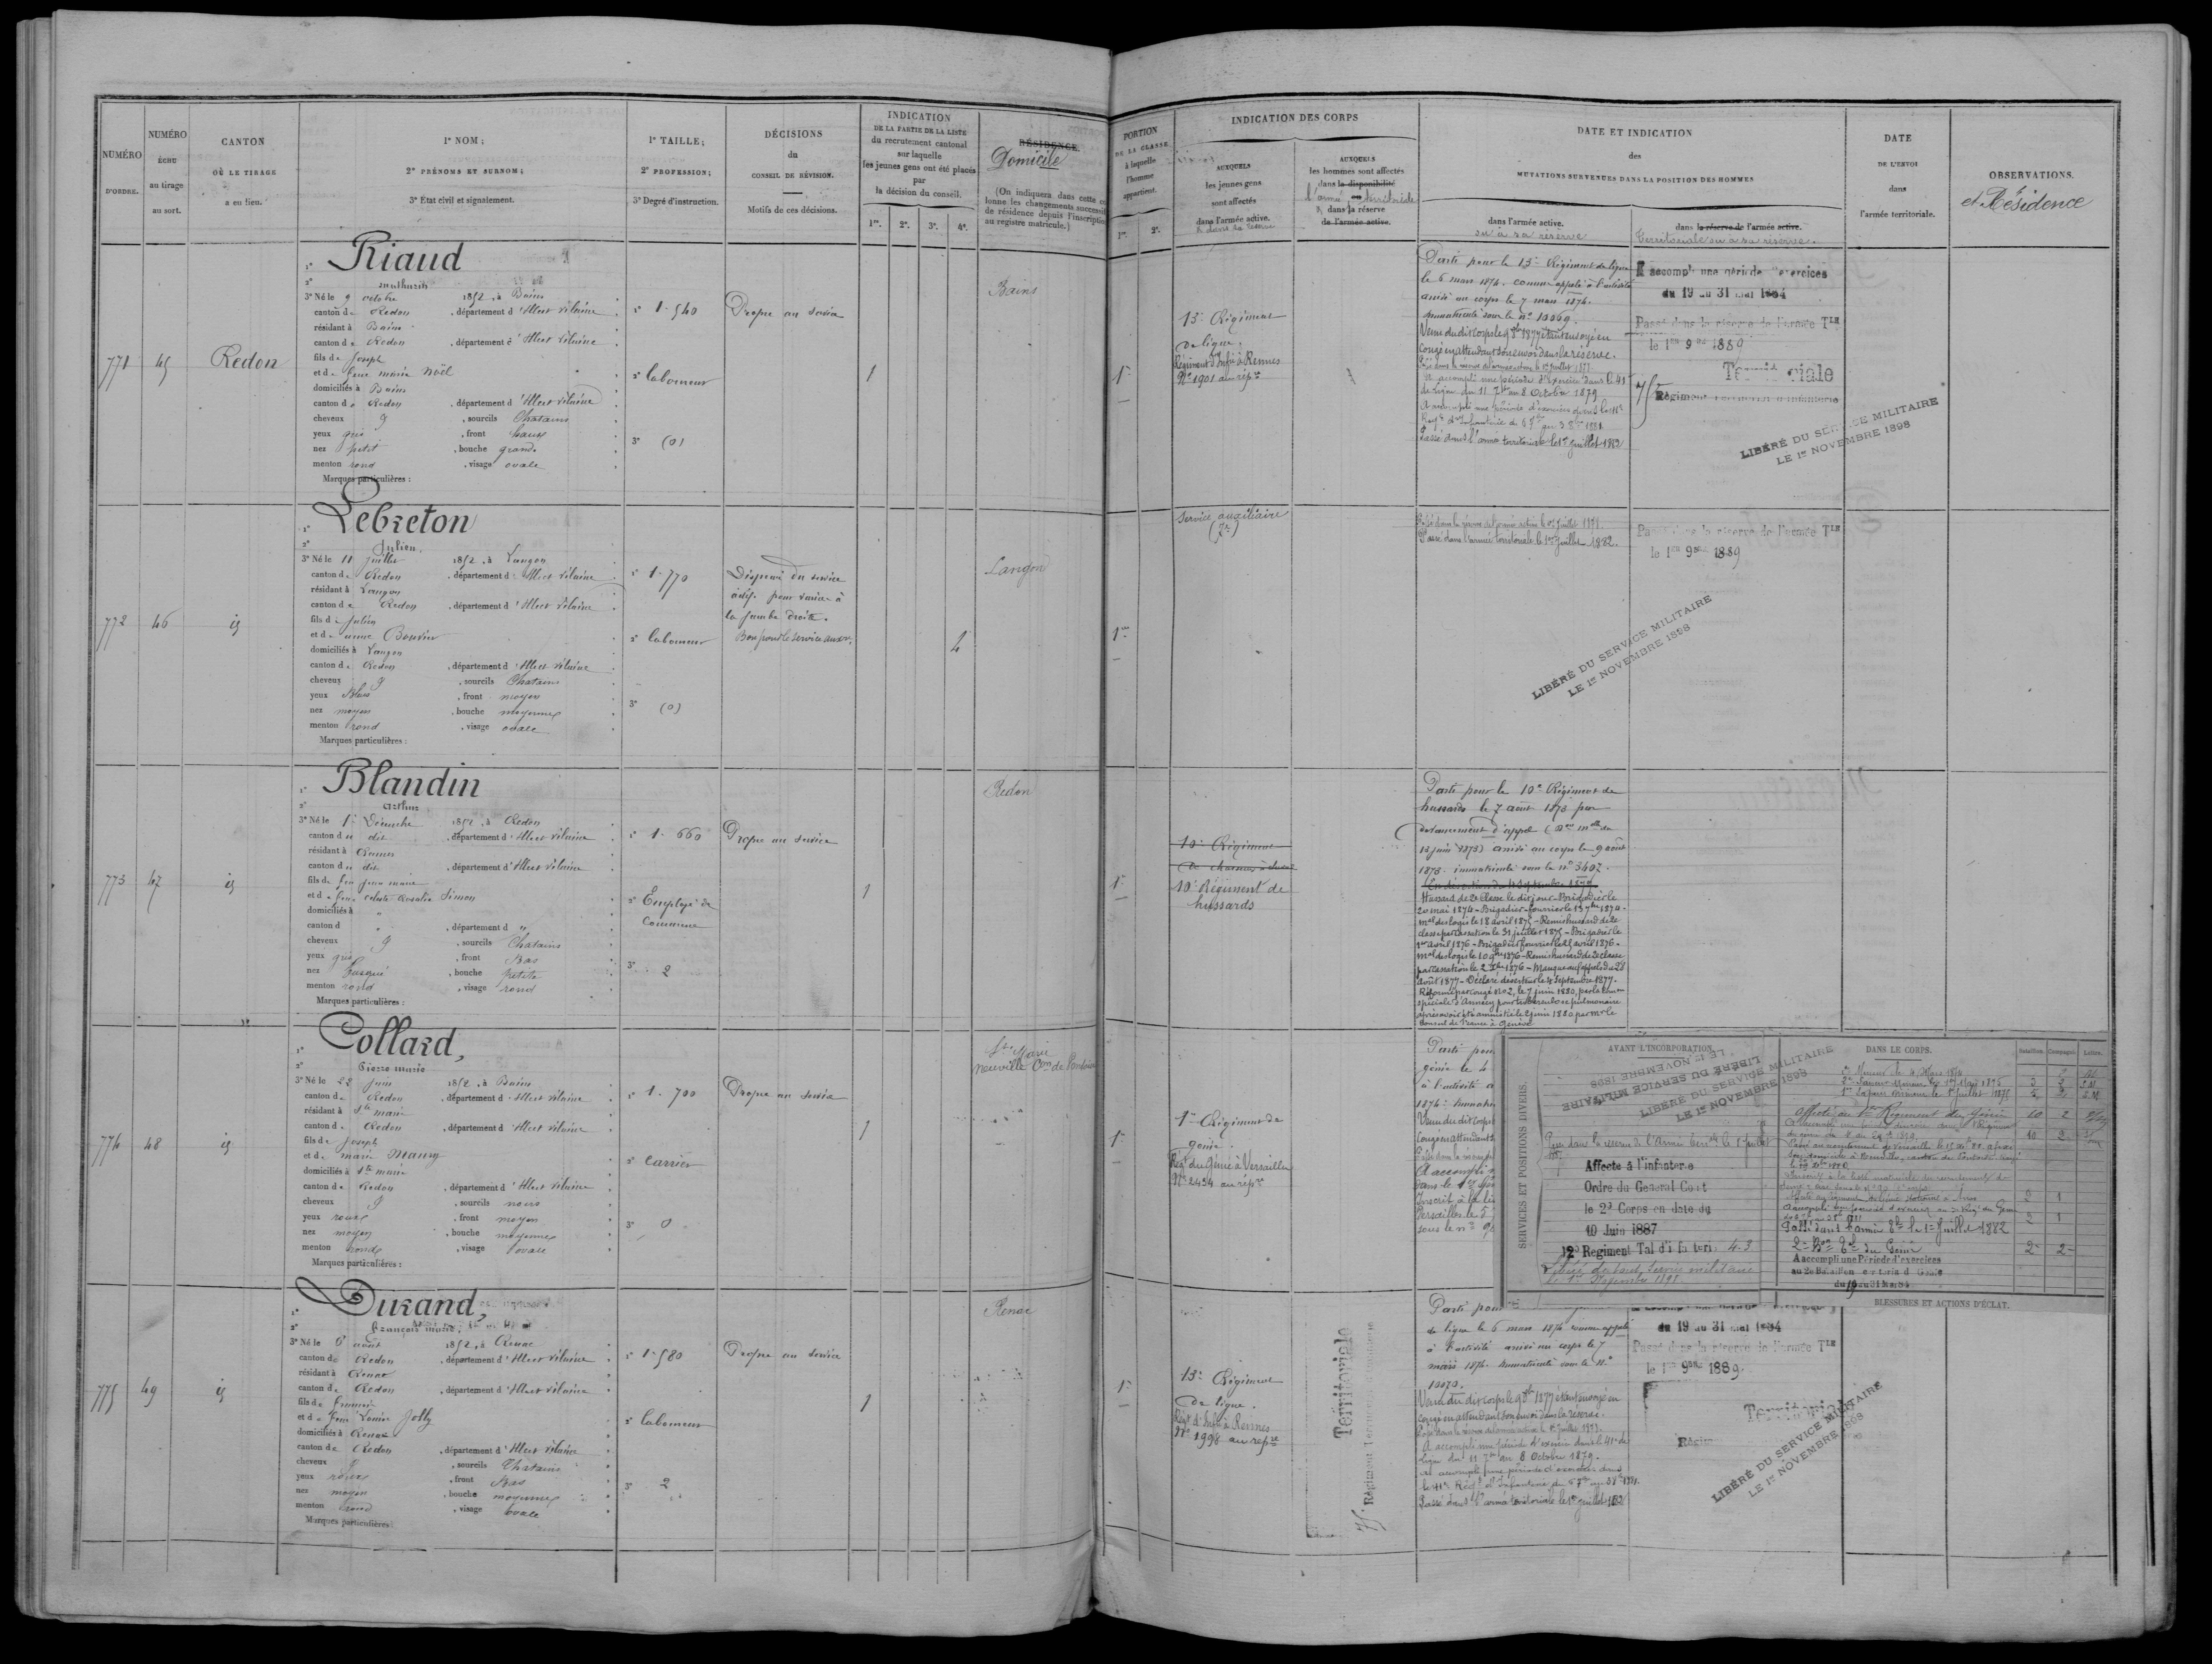 NUMÉRO
D'ORDRE.
NUMÉRO
ÉCHU
au tirage
au sort.
CANTON
OÙ LE TIRAGE
a eu lieu.
1° NOM ;
2° PRÉNOMS ET SURNOM ;
3° État civil et signalement.
1° TAILLE ;
2° PROFESSION ;
3° Degré d'instruction.
DÉCISIONS
du
CONSEIL DE RÉVISION.
Motifs de ces décisions.
INDICATION
DE LA PARTIE DE LA LISTE
du recrutement cantonal
sur laquelle
les jeunes gens ont été placés
par
la décision du conseil.
1re. 2e. 3e. 4e.
RÉSIDENCE.
Domicile
(On indiquera dans cette co
lonne les changements successif
de résidence depuis l'inscription
au registre matricule.)
PORTION
DE LA CLASSE
à laquelle
l'homme
appartient.
1re. 2e.
INDICATION DES CORPS
AUXQUELS
les jeunes gens
sont affectés
dans l'armée active.
& dans sa réserve
AUXQUELS
les hommes sont affectés
dans la disponibilité
l'armée territoriale
& dans la réserve
de l'armée active.
DATE ET INDICATION
des
MUTATIONS SURVENUES DANS LA POSITION DES HOMMES
dans l'armée active.
ou à sa réserve
dans la réserve de l'armée active.
Territoriale ou à sa réserve.
DATE
DE L'ENVOI
dans
l'armée territoriale.
OBSERVATIONS.
et Résidence
771
45
Redon
1° Riaud
2° Mathurin
3° Né le 9 octobre 1852, à Bains
canton de Redon, département d'Ille et Vilaine
résidant à Bains
canton de Redon, département d'Ille et Vilaine
fils de Joseph
et de feue Marie Noël
domiciliés à Bains
canton de Redon, département d'Ille et Vilaine
cheveux g, sourcils Chatains
yeux gris, front haut
nez petit, bouche grande
menton rond, visage ovale
Marques particulières :
1° 1-540
2° laboureur
3° (0)
Propre au service
1
Bains
1re
13e Régiment
de ligne.
Régiment d'Infie à Rennes
N° 1901 au répre
Parti pour le 13e Régiment de ligne
le 6 mars 1874. comme appelé à l'activité
arrivé au corps le 7 mars 1874.
immatriculé sous le n° 10069.
Venu du dit corps le 9 8bre 1877 étant envoyé en
congé en attendant son envoi dans la réserve.
A accompli une période d'exercice dans le 41e
de ligne du 11 7bre au 8 Octobre 1879
A accompli une période d'exercices dans le 41e
Passé dans l'armée territoriale le 1er juillet 1882
A accompli une période d'exercices
du 19 au 31 mai 1884
Passé dans la réserve de l'armée Tle
le 1er 9bre 1889
Territoriale
75e
Régiment Territorial d'Infanterie
LIBÉRÉ DU SERVICE MILITAIRE
LE 1er NOVEMBRE 1898
772
46
id
1° Lebreton
2° Julien,
3° Né le 11 juillet 1852, à Langon
canton de Redon, département d'Ille et Vilaine
résidant à Langon
canton de Redon, département d'Ille et Vilaine
fils de Julien
et de Anne Bouvier
domiciliés à Langon
canton de Redon, département d'Ille et Vilaine
cheveux g, sourcils Chatains
yeux bleus, front moyen
nez moyen, bouche moyenne
menton rond, visage ovale
Marques particulières :
1° 1-770
2° laboureur
3° (0)
Dispensé du service
actif pour varices à
la jambe droite.
Bon pour le service auxre.
4
Langon
1re
Service auxiliaire
Passé dans la réserve de l'armée active le 1er juillet 1878.
Passé dans l'armée territoriale le 1er juillet 1882.
Passé dans la réserve de l'armée Tle
le 1er 9bre 1889
LIBÉRÉ DU SERVICE MILITAIRE
LE 1er NOVEMBRE 1898
773
47
id
1° Blandin
2° Arthur
3° Né le 1er Décembre 1852, à Redon
canton du dit, département d'Ille et Vilaine
résidant à Rennes
canton du dit, département d'Ille et Vilaine
fils de feu Jean Marie
et de feue Céleste Rosalie Simon
domiciliés à "
canton d ", département d "
cheveux g, sourcils Chatains
yeux gris, front Bas
nez busqué, bouche petite
menton rond, visage rond
Marques particulières :
1° 1-660
2° Employé de
Commerce
3° 2
Propre au service
1
Redon
1re
10e Régiment
de chasseurs à cheval
10e Régiment de
hussards
Parti pour le 10e Régiment de
hussards le 7 août 1873 par
devancement d'appel
13 juin 1873) arrivé au corps le 9 août
1873. immatriculé sous le n° 3407.
En désertion du 4 septembre 1877
Hussard de 2e Classe le dit jour - Brigadier le
20 mai 1874 - Brigadier-fourrier le 19 7bre 1874 -
mal des logis le 18 avril 1875 - Remis hussard de 2e
classe par cassation le 31 juillet 1875 - Brigadier le
1er avril 1876 - Brigadier fourrier le 25 avril 1876 -
mal des logis le 10 9bre 1876 - Remis hussard de 2e classe
par cassation le 2 Xbre 1876 - Manque aux appels du 28
août 1877 - Déclaré déserteur le 4 septembre 1877 -
Réformé par congé n° 2, le 7 juin 1880, par la Comon
spéciale d'Annecy pour tuberculose pulmonaire
après avoir été amnistié le 2 juin 1880 par mr le
Consul de France à Genève
774
48
id
1° Collard,
2° Pierre Marie
3° Né le 22 Juin 1852, à Bains
canton de Redon, département d'Ille et Vilaine
résidant à Ste Marie
canton de Redon, département d'Ille et Vilaine
fils de Joseph
et de Marie Maury
domiciliés à Ste Marie
canton de Redon, département d'Ille et Vilaine
cheveux g, sourcils noirs
yeux roux, front moyen
nez moyen, bouche moyenne
menton rond, visage ovale
Marques particulières :
1° 1-700
2° Carrier
3° 0
Propre au service
1
Ste Marie
Neuville Con de Pontoise
1re
1er Régiment de
génie.
Régt du Génie à Versailles
N° 2434 au répre
Parti pour
génie le 4
à l'activité a
1874. immatri
Venu du dit corps l
congé en attendant s
A accompli u
dans le 1er Gén
Inscrit à la lis
Versailles le 5
sous le n°
SERVICES ET POSITIONS DIVERS.
AVANT L'INCORPORATION.
LIBÉRÉ DU SERVICE MILITAIRE
LE 1er NOVEMBRE 1898
LIBÉRÉ DU SERVICE MILITAIRE
LE 1er NOVEMBRE 1898
Passé dans la réserve de l'Armée terriale le 1er juillet
Affecté à l'infanterie
Ordre du Général Comt
le 2e Corps en date du
10 Juin 1887
12e Régiment Tal d'infanterie 4-3
Libéré du tout service militaire
le 1er Novembre 1898
DANS LE CORPS.
Bataillon. Compagnie. Lettre.
2e Mineur le 4 Mars 1874
2e Sapeur Mineur le 1er Mars 1875
1er Sapeur Mineur le 1er Juillet 1875
Affecté au 1er Régiment du Génie 10 2
Passé dans l'armée Tle le 1er Juillet 1882
2e Bon Tal du Génie 2 2
A accompli une Période d'exercices
au 2e Bataillon territorial du Génie
du 19 au 31 Mai 84
BLESSURES ET ACTIONS D'ÉCLAT.
775
49
id
1° Durand,
2° François Marie,
3° Né le 8 août 1852, à Renac
canton de Redon, département d'Ille et Vilaine
résidant à Renac
canton de Redon, département d'Ille et Vilaine
fils de François
et de feue Louise Jolly
domiciliés à Renac
canton de Redon, département d'Ille et Vilaine
cheveux g, sourcils Chatains
yeux roux, front Bas
nez moyen, bouche moyenne
menton rond, visage ovale
Marques particulières :
1° 1-580
2° laboureur
3° 2
Propre au service
1
Renac
1re
13e Régiment
de ligne.
Régt d'Infie à Rennes
N° 1998 au répre
Territoriale
75 Régiment Territorial d'Infanterie
Parti pour
de ligne le 6 mars 1874 comme appelé
à l'activité arrivé au corps le 7
mars 1874. immatriculé sous le n°
10070.
Venu du dit corps le 9 8bre 1877 étant envoyé en
congé en attendant son envoi dans la réserve.
Passé dans la réserve de l'armée active le 1er juillet 1878.
A accompli une période d'exercice dans le 41e de
ligne du 11 7bre au 8 Octobre 1879.
A accompli une période d'exercices dans
Passé dans l'armée territoriale le 1er juillet 1882
du 19 au 31 mai 1884
Passé dans la réserve de l'armée Tle
le 1er 9bre 1889.
Territoriale
Régim
LIBÉRÉ DU SERVICE MILITAIRE
LE 1er NOVEMBRE 1898